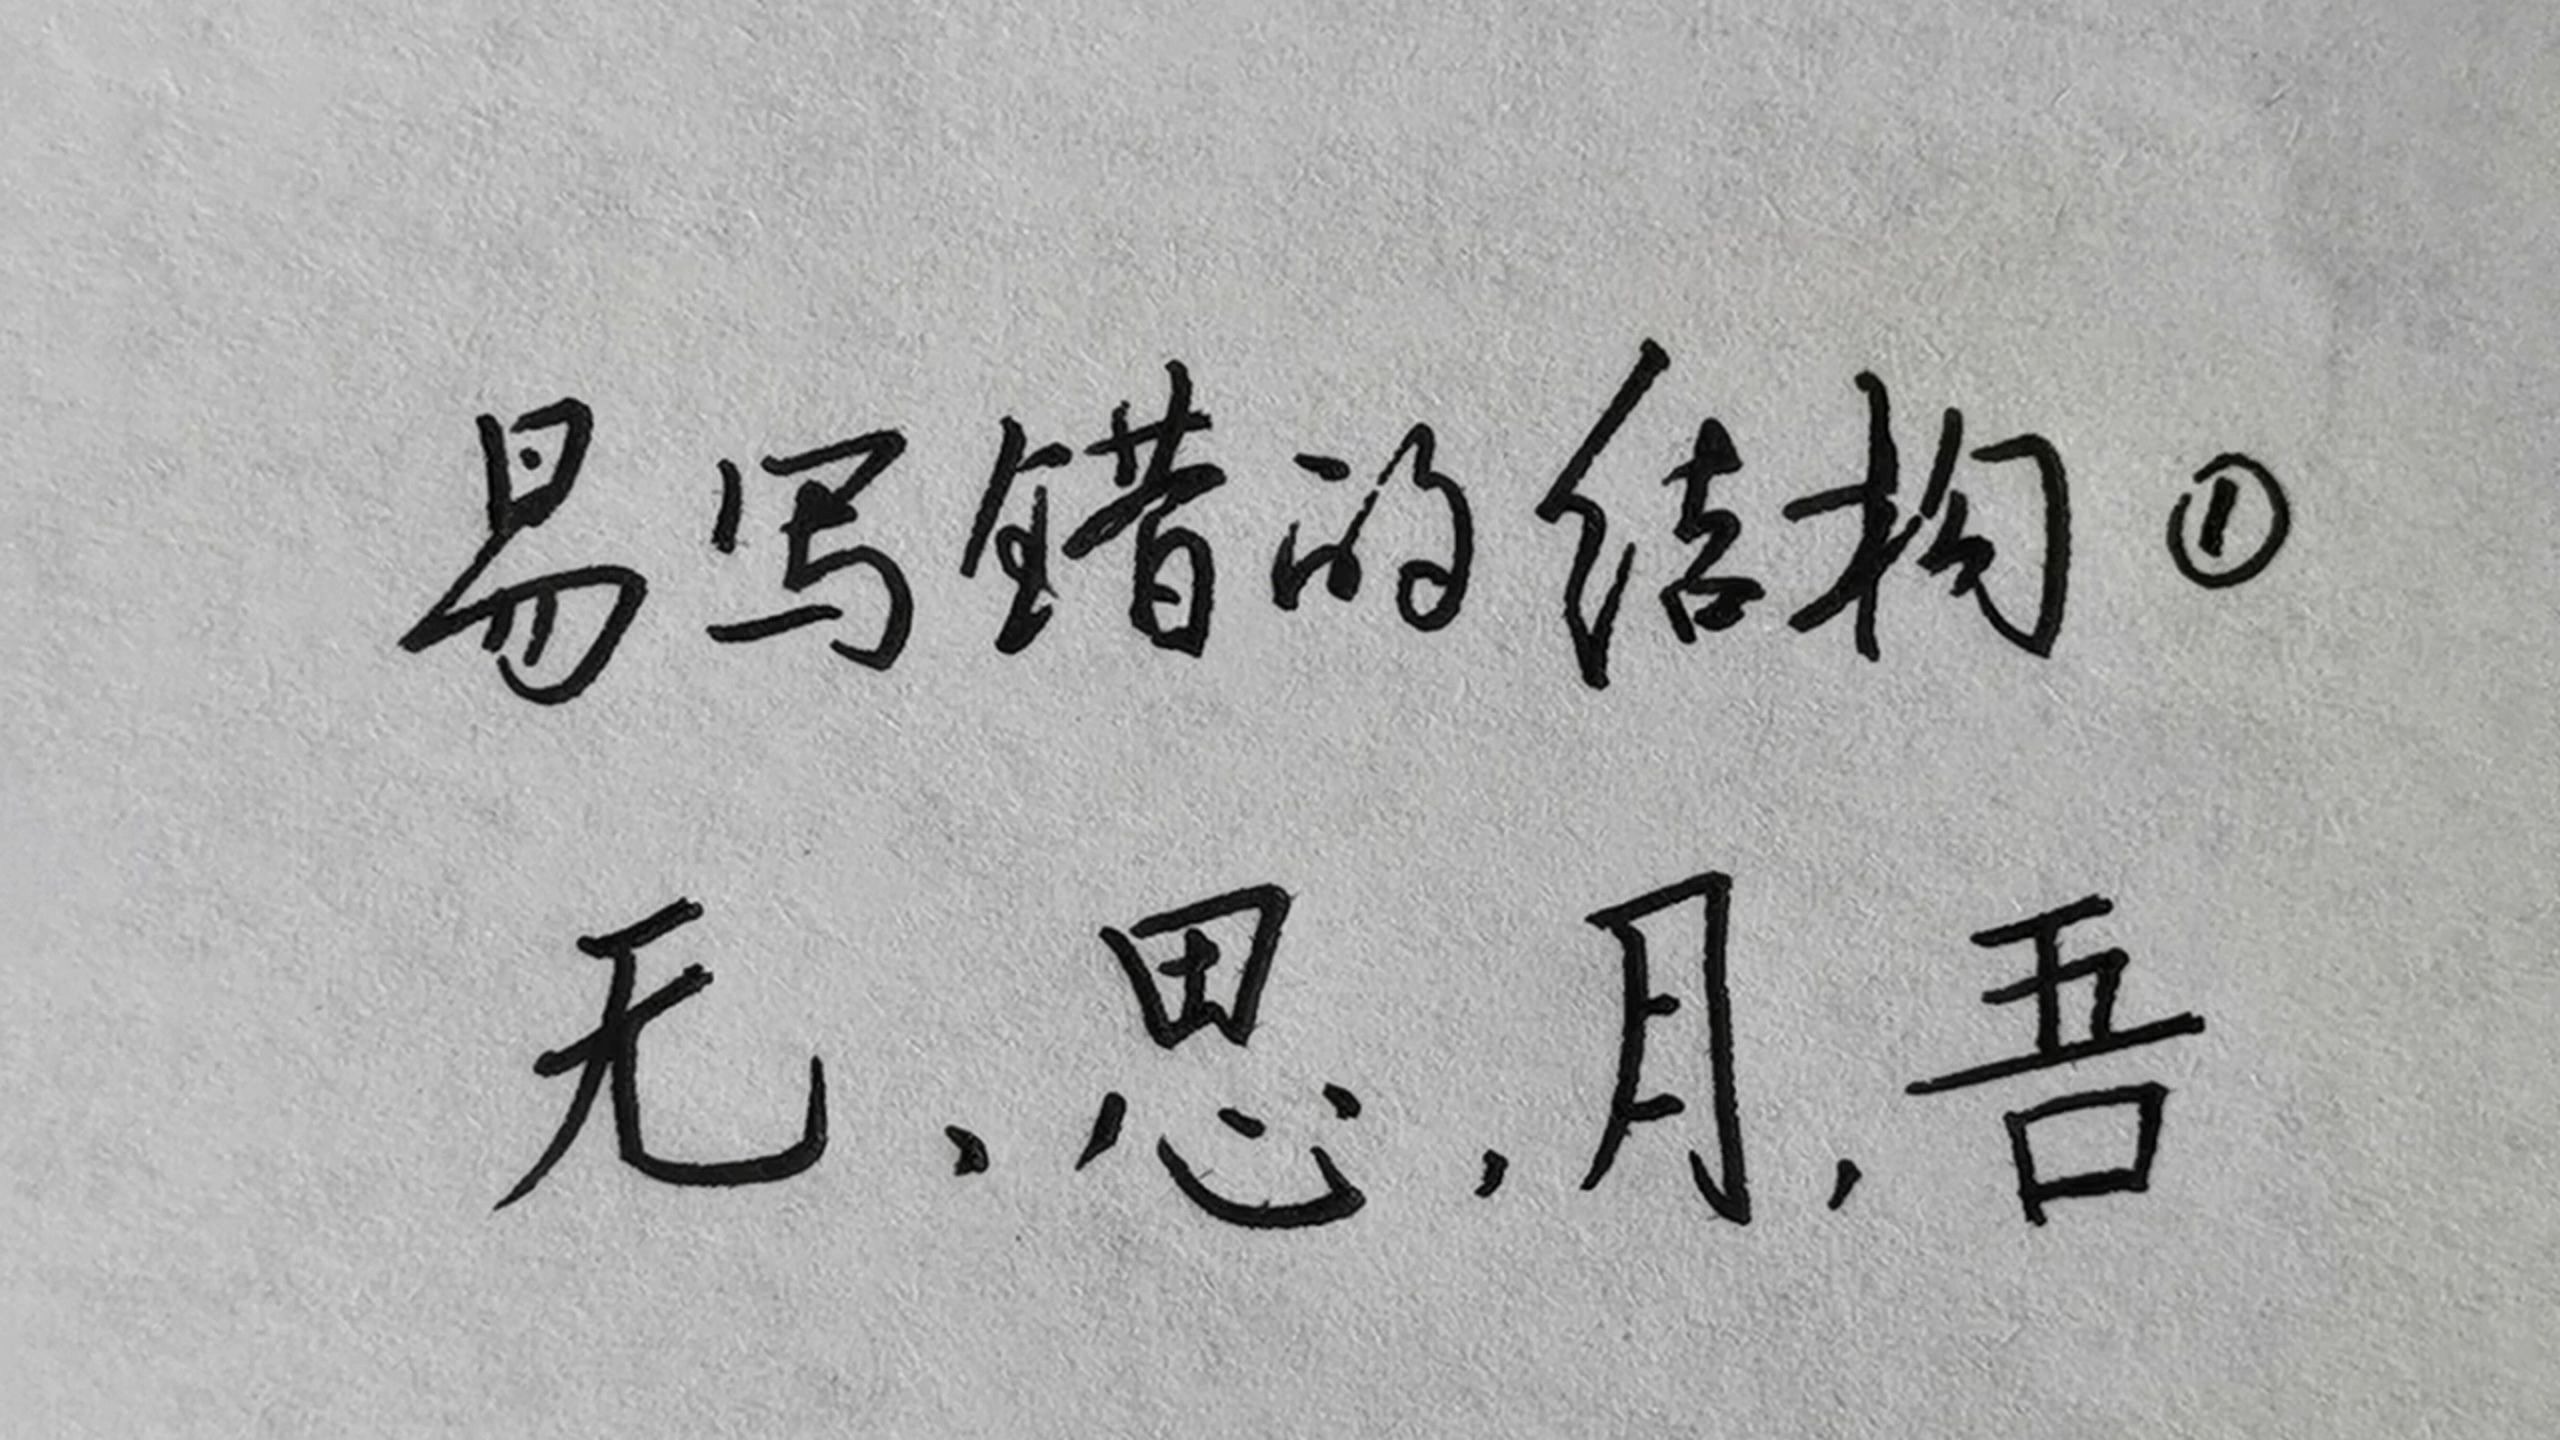 易写错的结构①
无、思,月,吾